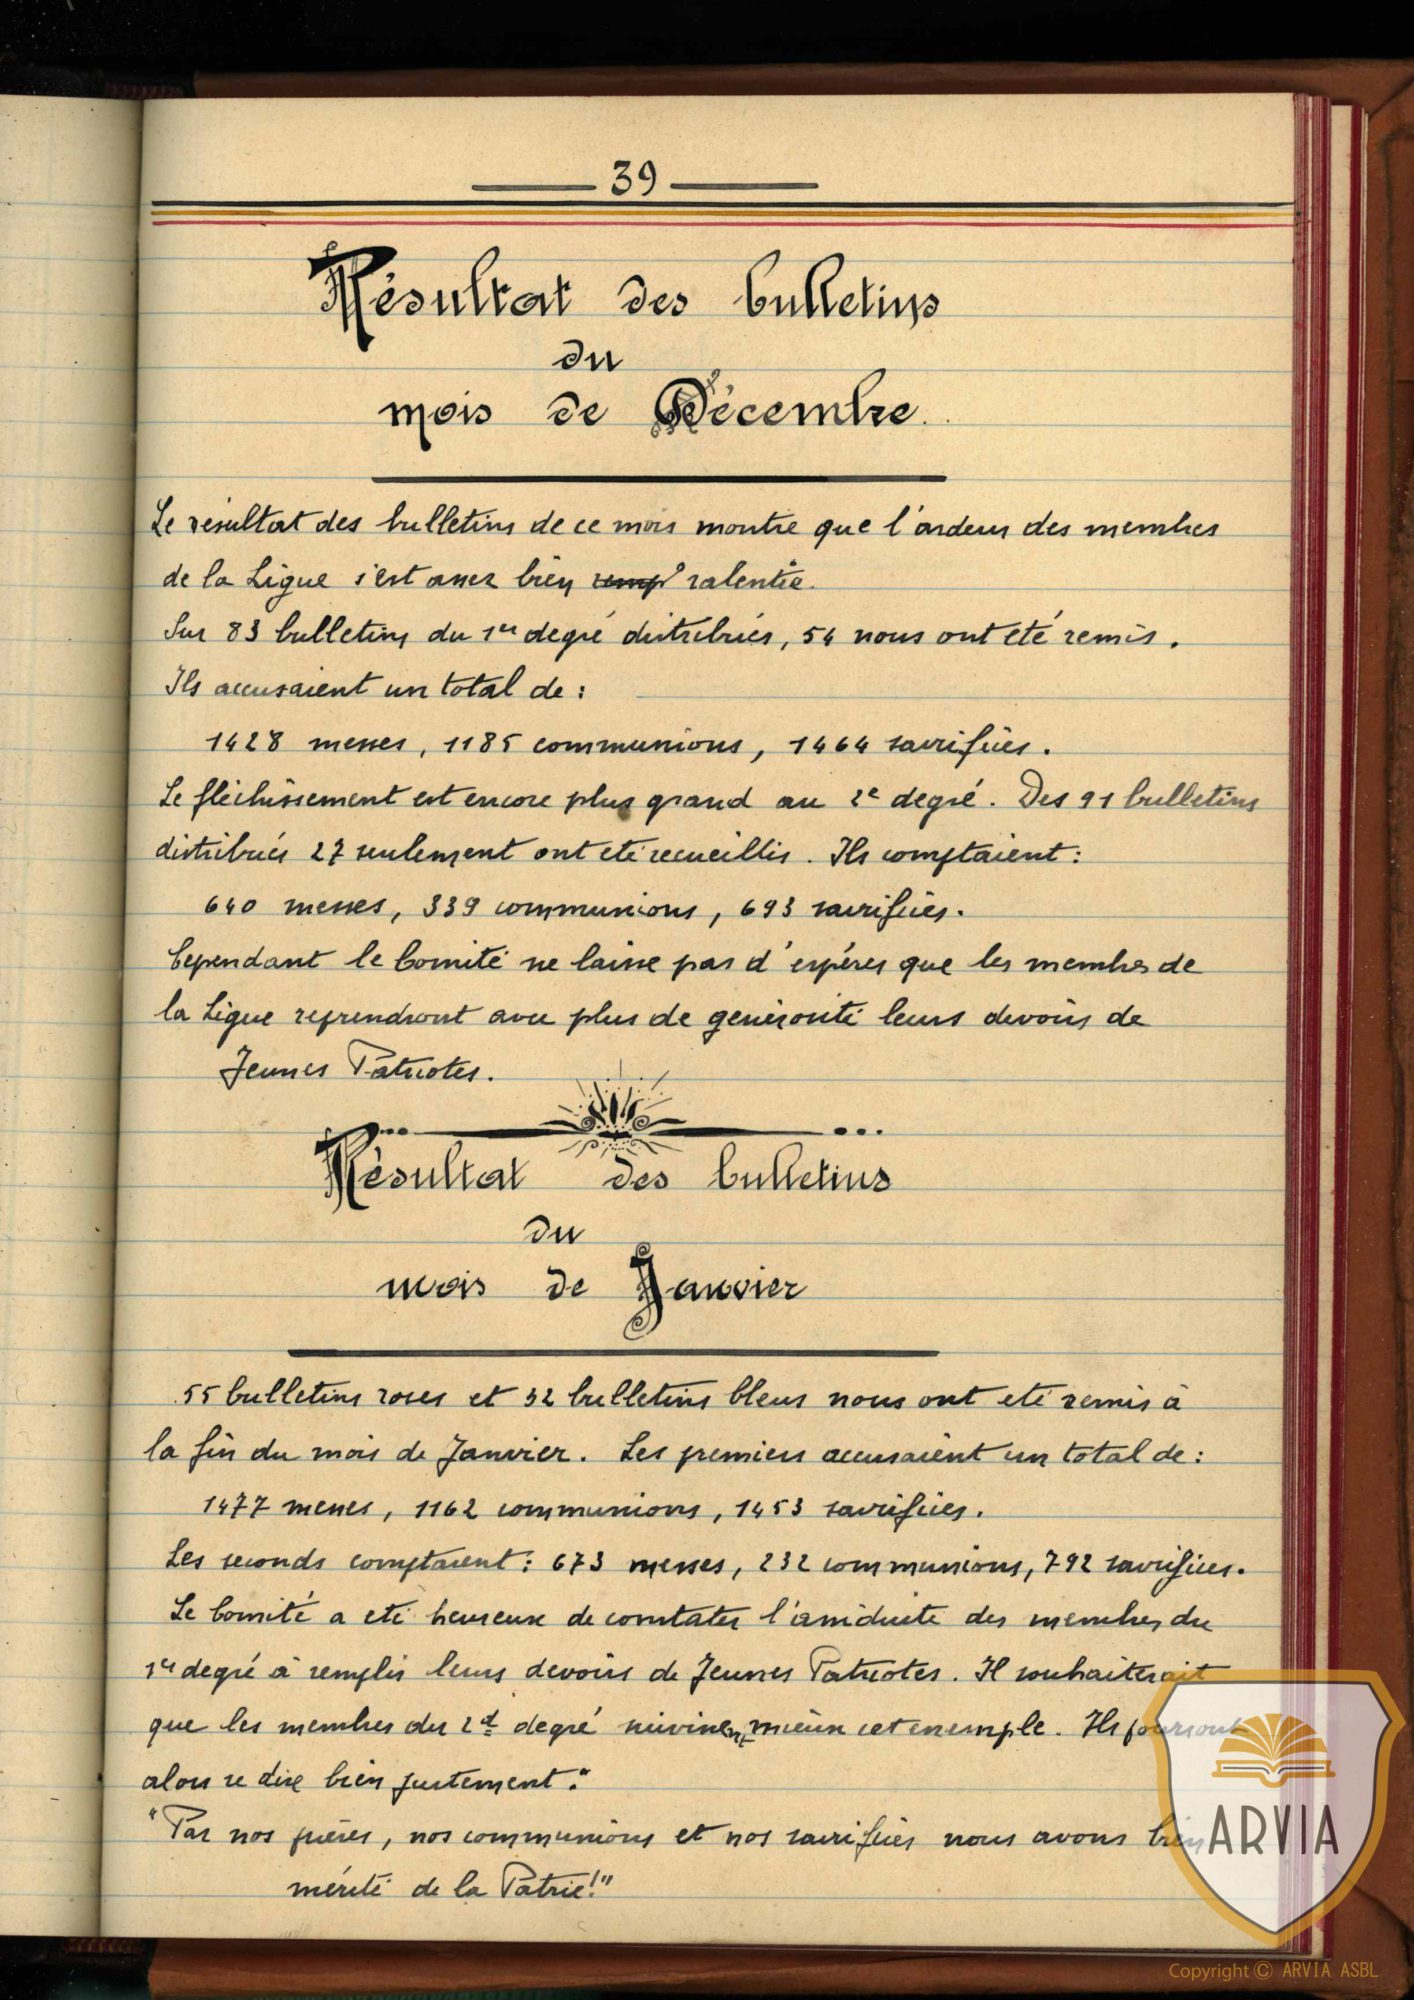 39
Résultat des bulletins
du
mois de Décembre.
Le résultat des bulletins de ce mois montre que l'ardeur des membres
de la Ligue s'est assez bien ralentie.
Sur 83 bulletins du 1er degré distribués, 54 nous ont été remis.
Ils accusaient un total de :
1428 messes, 1185 communions, 1464 sacrifices.
Le fléchissement est encore plus grand au 2e degré. Des 91 bulletins
distribués 27 seulement ont été recueillis. Ils comptaient :
640 messes, 339 communions, 693 sacrifices.
Cependant le Comité ne laisse pas d'espérer que les membres de
la Ligue reprendront avec plus de générosité leurs devoirs de
Jeunes Patriotes.
Résultat des bulletins
du
mois de Janvier
55 bulletins roses et 32 bulletins bleus nous ont été remis à
la fin du mois de Janvier. Les premiers accusaient un total de :
1477 messes, 1162 communions, 1453 sacrifices.
Les seconds comptaient : 673 messes, 232 communions, 792 sacrifices.
Le Comité a été heureux de constater l'assiduité des membres du
1er degré à remplir leurs devoirs de Jeunes Patriotes. Il souhaiterait
que les membres du 2d degré suivissent mieux cet exemple. Ils pourront
alors se dire bien justement :
"Par nos prières, nos communions et nos sacrifices nous avons bien
mérité de la Patrie!"
ARVIA
Copyright © ARVIA ASBL